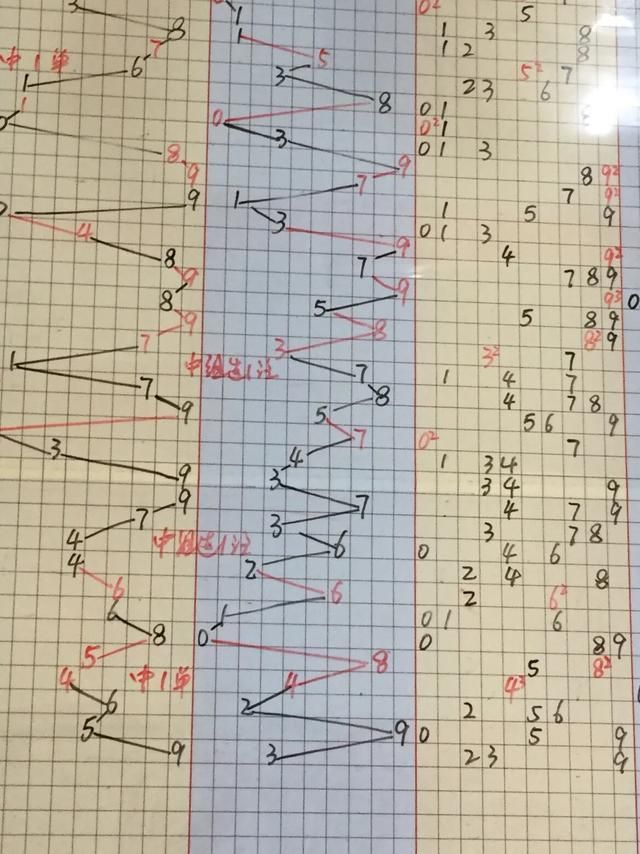 3 1 5
8 1 1 3 8
中1单 7 5 1 2 8
6 3 5² 7
1 2 3 6
1 8 0 1
0 0² 1
8 3 0 1 3
9 9 8 9²
7 7 9²
9 1 1 5 9
0 3 0 1 3
4 9 4 9²
8 7 7 8 9
9 9 9³ 0
8 5 5 8 9
9 8 8² 9
7 3 3² 7
1 中组选1注 7 1 4 7
7 8 4 7 8
9 5 5 6 9
7 0² 7
3 4 1 3 4
9 3 3 4 9
9 7 4 7 9
7 3 3 7 8
4 中组选1注 6 0 4 6
4 2 2 4 8
6 6 2 6²
6 1 0 1 6
8 0 0 8 9
5 8 5 8²
4 中1单 4 4³
6 2 2 5 6
5 9 0 5 9
9 3 2 3 9